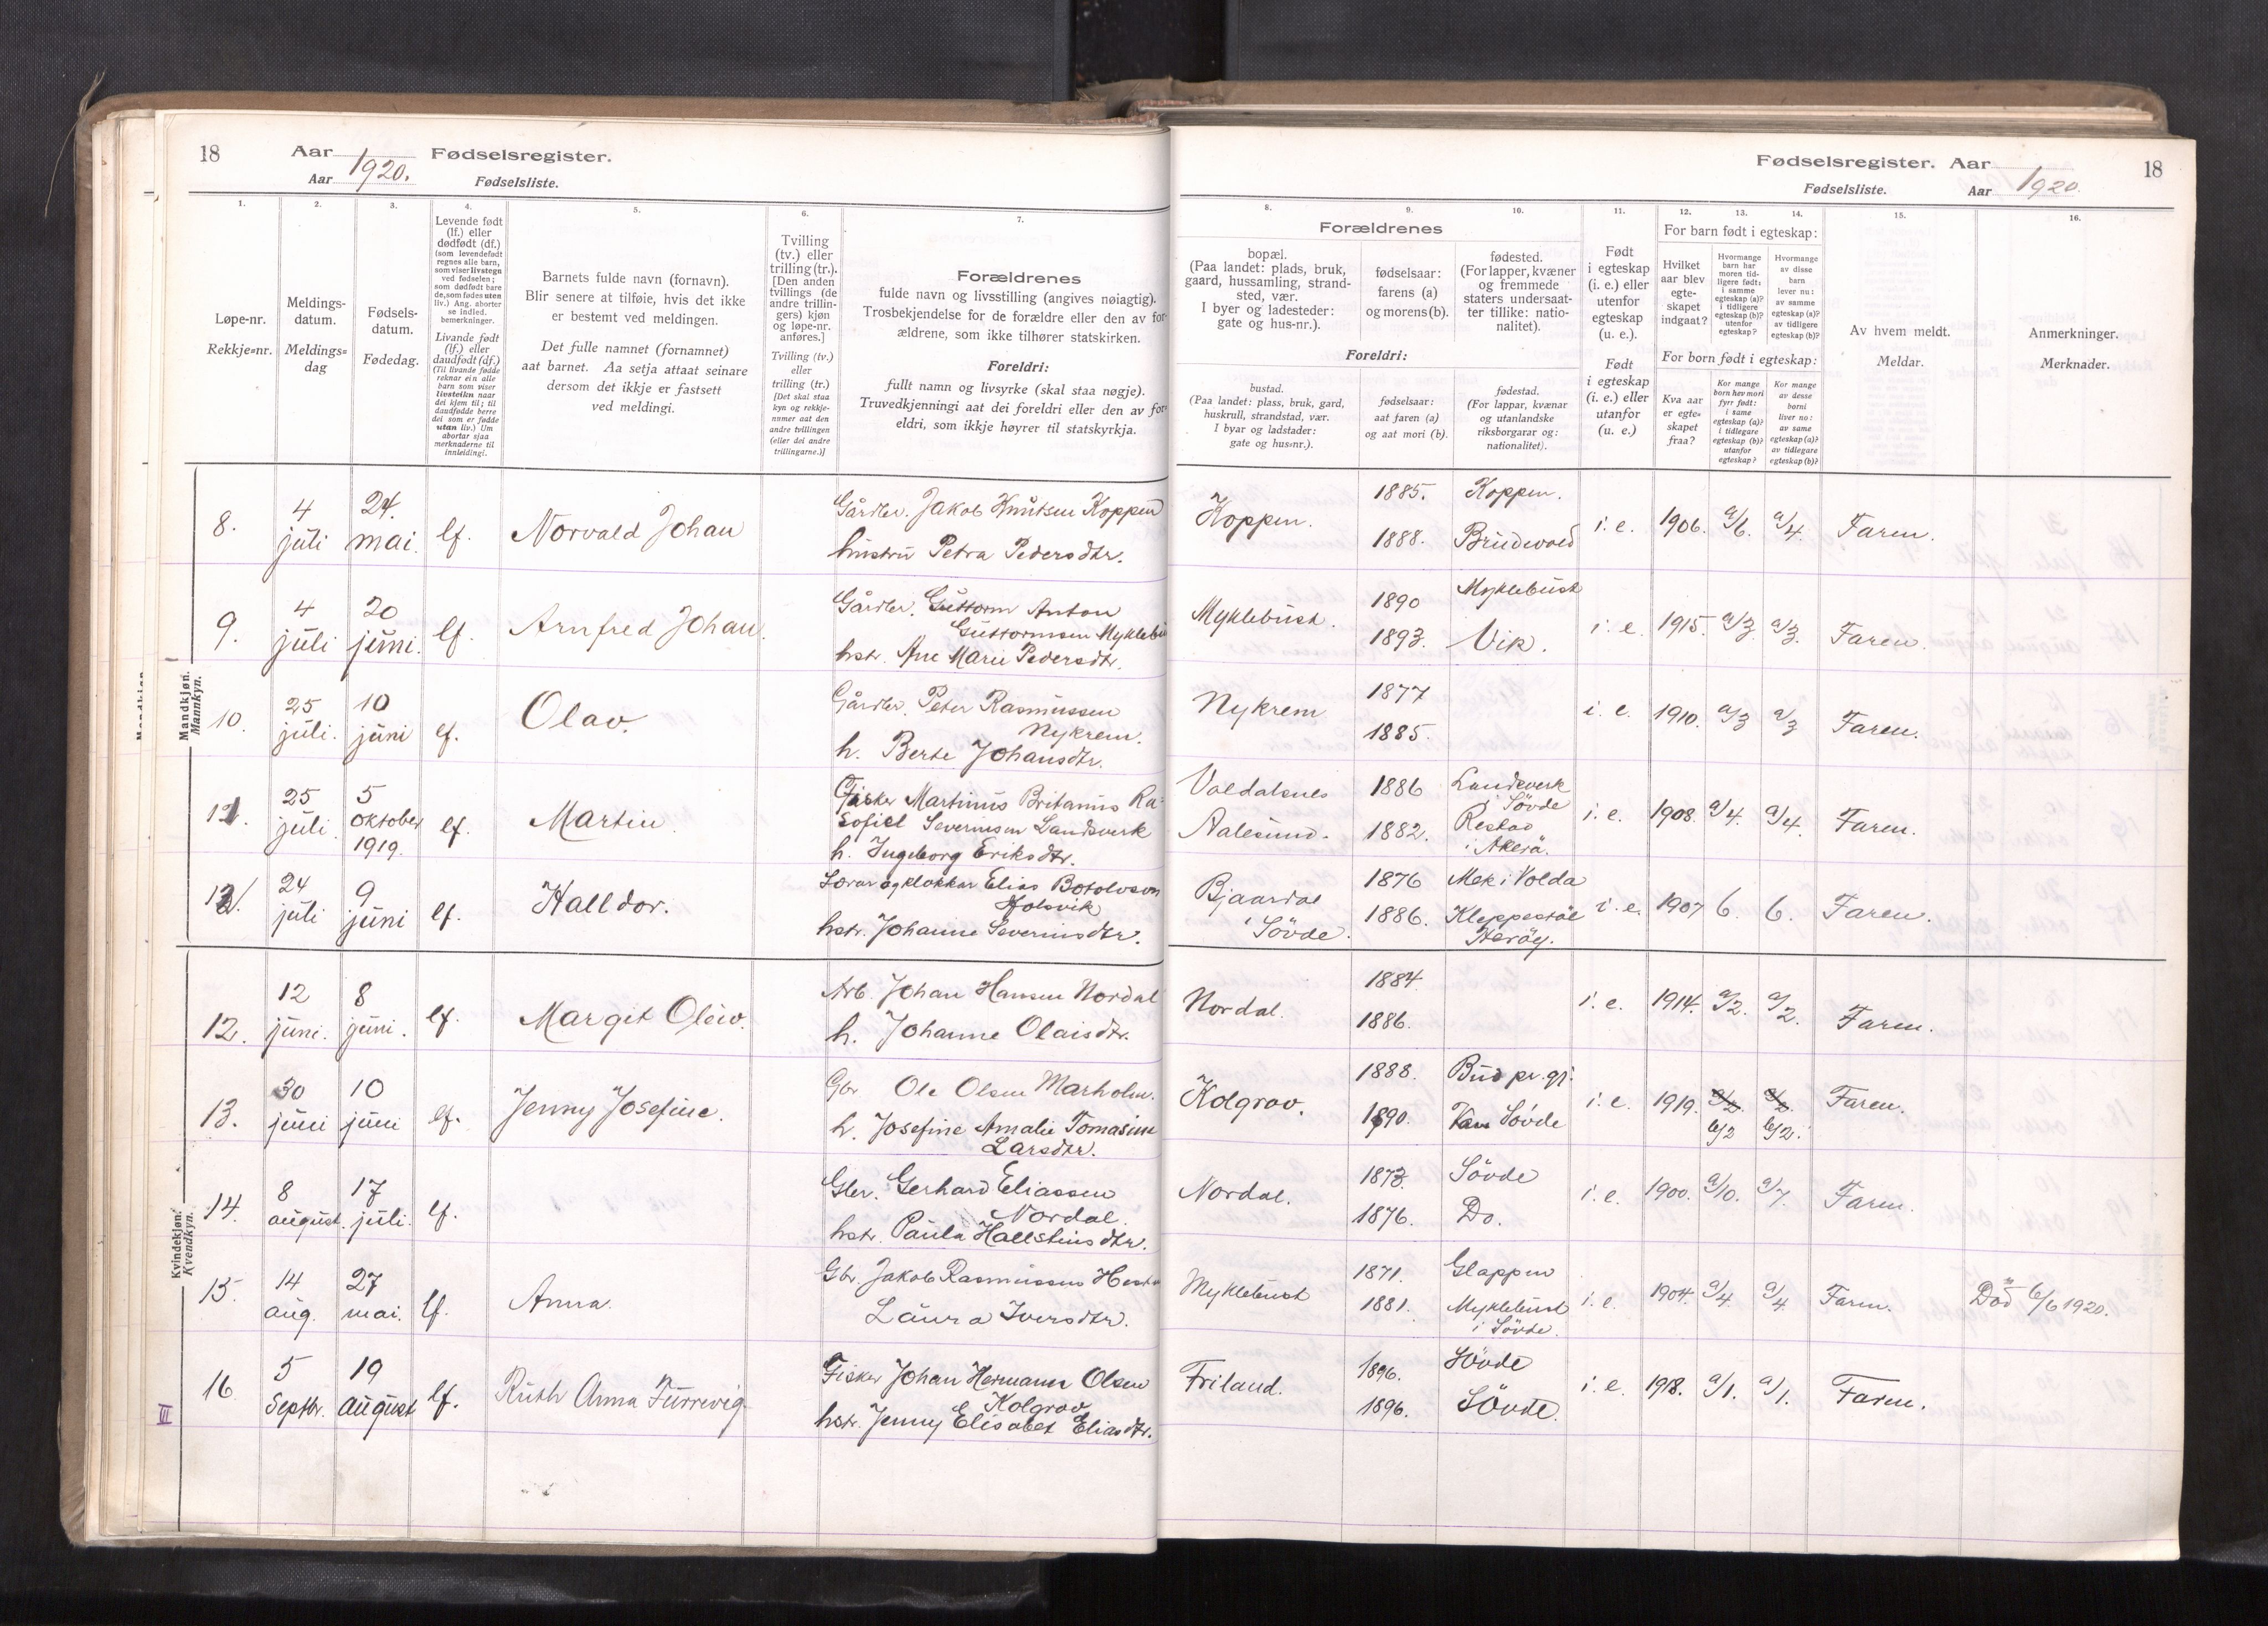 18 Aar 1920. Fødselsregister.
Aar Fødselsliste.
Fødselsregister. Aar 1920. 18
Fødselsliste. Aar
1. 2. 3. 4. 5. 6. 7.
Løpe-nr.
Rekkje=nr.
Meldings-
datum.
Meldings=
dag
Fødsels-
datum.
Fødedag.
Levende født
(lf.) eller
dødfødt (df.)
(som levendefødt
regnes alle barn,
som viser livstegn
ved fødselen;
som dødfødt bare
de, som fødes uten
liv.) Ang. aborter
se indled.
bemerkninger.
Livande født
(lf.) eller
daudfødt (df.)
(Til livande fødde
reknar ein alle
barn som viser
livsteikn naar
dei kjem til; til
daudfødde berre
dei som er fødde
utan liv.) Um
abortar sjaa
merknaderne til
innleidingi.
Barnets fulde navn (fornavn).
Blir senere at tilføie, hvis det ikke
er bestemt ved meldingen.
Det fulle namnet (fornamnet)
aat barnet. Aa setja attaat seinare
dersom det ikkje er fastsett
ved meldingi.
Tvilling
(tv.) eller
trilling (tr.).
[Den anden
tvillings (de
andre trillin-
gers) kjøn
og løpe-nr.
anføres.]
Tvilling (tv.)
eller
trilling (tr.)
[Det skal staa
kyn og rekkje-
nummer aat den
andre tvillingen
(eller dei andre
trillingarne.)]
Forældrenes
fulde navn og livsstilling (angives nøiagtig).
Trosbekjendelse for de forældre eller den av for-
ældrene, som ikke tilhører statskirken.
Foreldri:
fullt namn og livsyrke (skal staa nøgje).
Truvedkjenningi aat dei foreldri eller den av for-
eldri, som ikkje høyrer til statskyrkja.
8. 9. 10. 11. 12. 13. 14. 15. 16.
Forældrenes
bopæl.
(Paa landet: plads, bruk,
gaard, hussamling, strand-
sted, vær.
I byer og ladesteder:
gate og hus-nr.).
fødselsaar:
farens (a)
og morens (b).
fødested.
(For lapper, kvæner
og fremmede
staters undersaat-
ter tillike: natio-
nalitet).
Foreldri:
bustad.
(Paa landet: plass, bruk, gard,
huskrull, strandstad, vær.
I byar og ladstader:
gate og hus=nr.).
fødselsaar:
aat faren (a)
og aat mori (b).
fødestad.
(For lappar, kvænar
og utanlandske
riksborgarar og:
nationalitet).
Født
i egteskap
(i. e.) eller
utenfor
egteskap
(u. e.).
Født
i egteskap
(i. e.) eller
utanfor
(u. e.)
For barn født i egteskap:
Hvilket
aar blev
egte-
skapet
indgaat?
Hvormange
barn har
moren tid-
ligere født:
i samme
egteskap (a)?
i tidligere
egteskap (b)?
utenfor
egteskap?
Hvormange
av disse
barn
lever nu:
av samme
egteskap (a)?
av tidligere
egteskap (b)?
For born født i egteskap:
Kva aar
er egte=
skapet
fraa?
Kor mange
born hev mori
fyrr født:
i same
egteskap (a)?
i tidlegare
egteskap (b)?
utanfor
egteskap?
Kor mange
av desse
borni
liver no:
av same
egteskap (a)?
av tidlegare
egteskap (b)?
Av hvem meldt.
Meldar.
Anmerkninger.
Merknader.
Mandkjøn.
Mannkyn.
8. 4 juli 24. mai. lf. Norvald Johan Gårdbr. Jakob Knutsen Koppen
hustru Petra Pedersdtr.
Koppen. 1885. Koppen. i. e. 1906. a/6. a/4. Faren.
1888. Brudevold
9. 4 juli 20 juni. lf. Arnfred Johan. Gårdbr. Guttorm Anton
Guttormsen Myklebu
hstr. Ane Marie Pedersdtr.
Myklebust. 1890 Myklebust i. e. 1915. a/3. a/3. Faren.
1893. Vik.
10. 25 juli. 10 juni lf. Olav. Gårdbr. Peter Rasmussen
Nykrem.
h. Berte Johansdtr.
Nykrem 1877 i. e. 1910. a/3 a/3 Faren.
1885.
11. 25 juli. 5 oktober 1919. lf. Martin. Fisker Martinus Britanus Ra-
Sofiel Severinsen Landsverk
h. Ingeborg Eriksdtr.
Valdalsnes 1886 Landsverk
i Søvde
Aalesund. 1882. Restad
i Akerø.
i. e. 1908. a/4. a/4. Faren.
12. 24 juli 9 juni lf. Halldor. Lærar og klokkar Elias Botolvson
Holsvik
hstr. Johanne Severinsdtr.
Bjaardal 1876 Mek i Volda
i Søvde. 1886. Kleppestøl
Herøy.
i. e. 1907 6. 6. Faren.
Kvindekjøn.
Kvendkyn.
12. 12 juni. 8 juni. lf. Margit Oleiv. Arb. Johan Hansen Nordal
h. Johanne Olaisdtr.
Nordal. 1884. i. e. 1914. a/2. a/2. Faren.
1886.
13. 30 juni 10 juni lf. Jenny Josefine. Gbr Ole Olsen Marholm.
h. Josefine Amalie Tomasine
Larsdtr.
Kolgrov. 1888. Bud pr. gj. i. e. 1919. a/2. a/2. Faren.
1890. Søvde b/2 b/2.
14. 8 august. 17 juli. lf. Gbr. Gerhard Eliassen
Nordal.
hstr. Paula Hallsteinsdtr.
Nordal. 1873. Søvde i. e. 1900. a/10. a/7. Faren.
1876. Do.
15. 14 aug. 27 mai. lf. Anna. Gbr. Jakob Rasmussen
Laura Iversdtr.
Myklebust 1871. Glappen i. e. 1904. a/4. a/4 Faren. Død 6/6 1920.
1881. Myklebust
i Søvde.
16. 5 Septbr. 19 august lf. Ruth Anna Furrevig Fisker Johan Hermann Olsen
Kolgrov
hstr. Jenny Elisabet Eliasdtr.
Friland. 1896. Søvde i. e. 1918. a/1. a/1. Faren.
1896. Søvde.